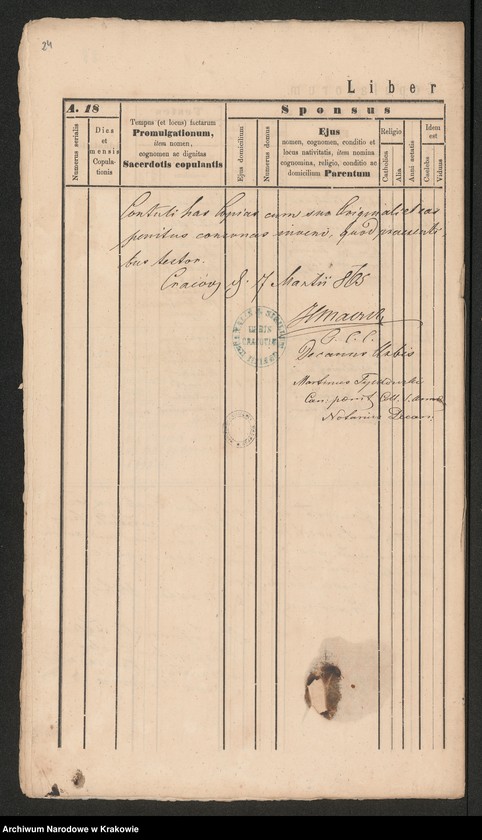 24
Liber
A. 18
Sponsus
Numerus serialis
Dies
et
mensis
Copula-
tionis
Tempus (et locus) factarum
Promulgationum,
item nomen,
cognomen ac dignitas
Sacerdotis copulantis
Ejus domicilium
Numerus domus
Ejus
nomen, cognomen, conditio et
locus nativitatis, item nomina
cognomina, religio, conditio ac
domicilium Parentum
Religio
Catholica
Alia
Anni aetatis
Idem
est
Caelebs
Viduus
Contuli has Copias cum suo Originali et eas
penitus concordas inveni, quod praesenti
bus testor.
7 Martii 865
Decanus Urbis
Martinus
Can: Coll. S. Annae
Notarius Decan:
Archiwum Narodowe w Krakowie